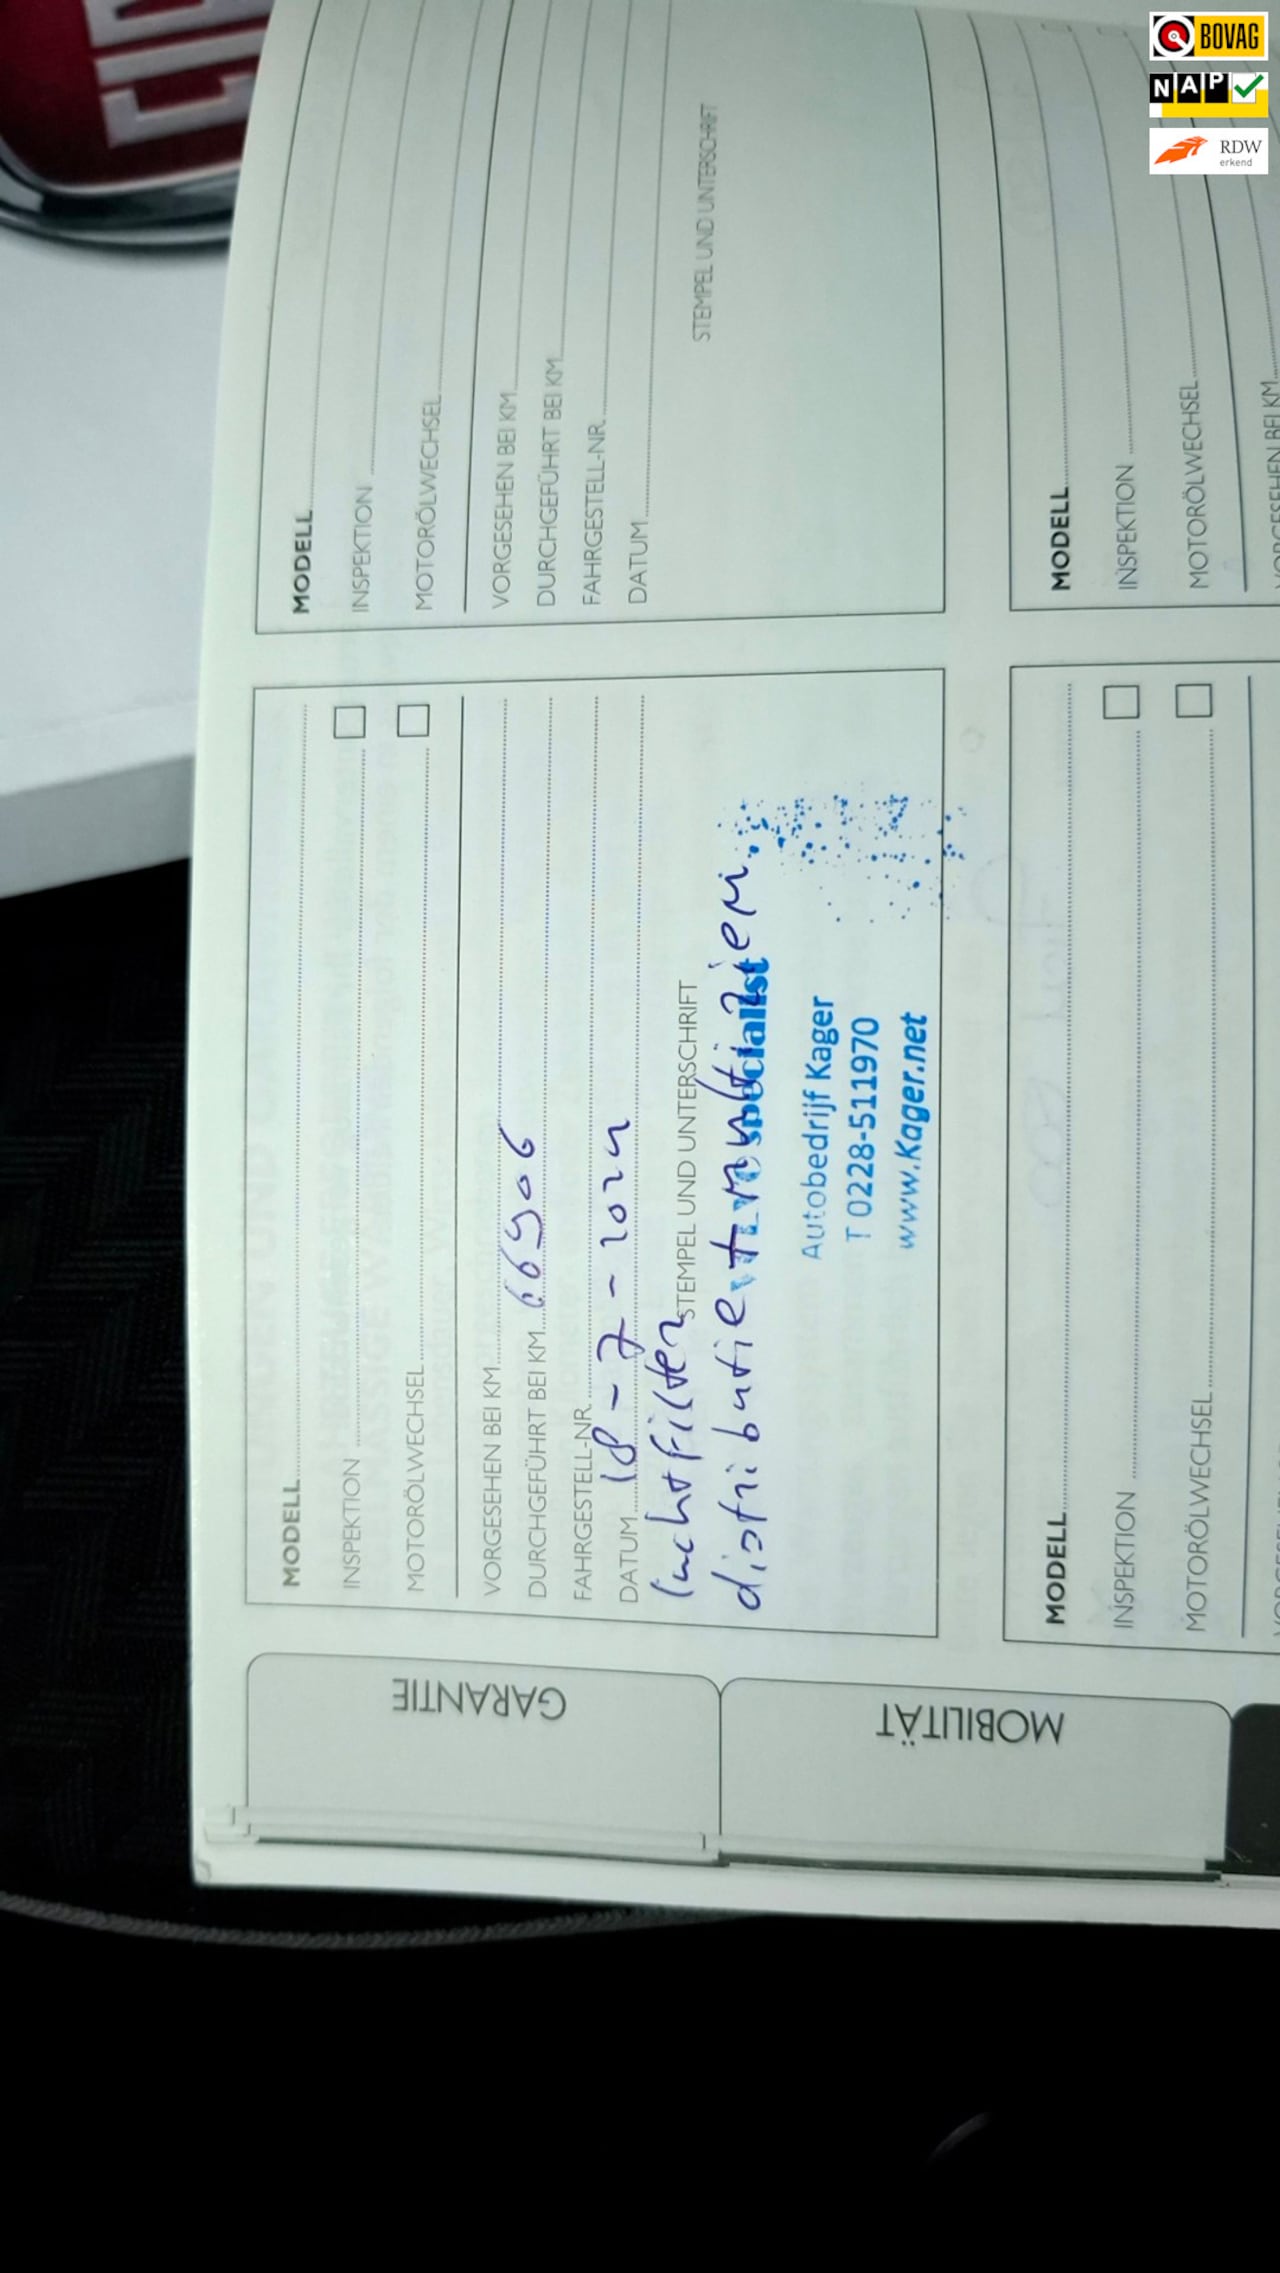 BOVAG
NAP
RDW
erkend
FIA
GARANTIE
MOBILITÄT
MODELL
INSPEKTION
MOTORÖLWECHSEL
VORGESEHEN BEI KM
DURCHGEFÜHRT BEI KM 66906
FAHRGESTELL-NR.
DATUM 18-7-2024
luchtfilter
STEMPEL UND UNTERSCHRIFT
distributie + multiriem.
specialist
Autobedrijf Kager
T 0228-511970
www.Kager.net
MODELL
INSPEKTION
MOTORÖLWECHSEL
VORGESEHEN BEI KM
DURCHGEFÜHRT BEI KM
FAHRGESTELL-NR.
DATUM
STEMPEL UND UNTERSCHRIFT
MODELL
INSPEKTION
MOTORÖLWECHSEL
MODELL
INSPEKTION
MOTORÖLWECHSEL
VORGESEHEN BEI KM